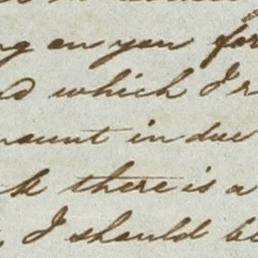 ng on you for
which I r
mount in due
k there is a
, I should be